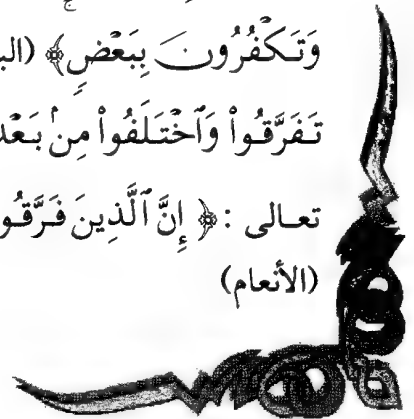 وَتَكْفُرُونَ بِبَعْضٍ﴾ (الب
تَفَرَّقُواْ وَٱخْتَلَفُواْ مِنۢ بَعْدِ
تعالى : ﴿ إِنَّ ٱلَّذِينَ فَرَّقُو
(الأنعام)